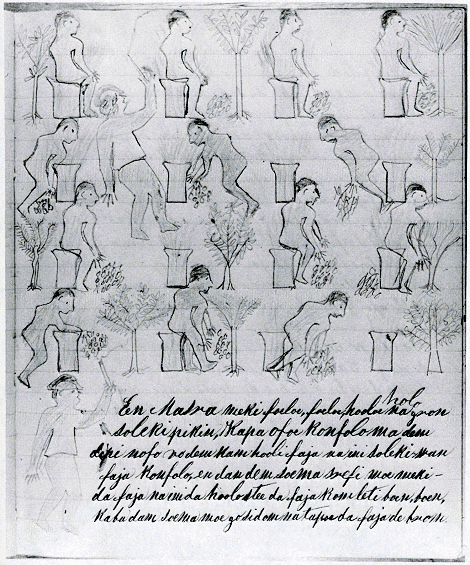 En Masra meki foeloe, foeloe hooloe na gron
soleki pikin, Kapa ofoe Konfolo ma dem
dipi nofo vo dem kam hooli faja na ini soleki wan
faja Konfolo, en dan dem soema srefi moe meki-
da faja na ini da hooloe tee da faja kom leti boen, boen,
Kaba dam soema moe go sidom na tapoe da faja de bron.